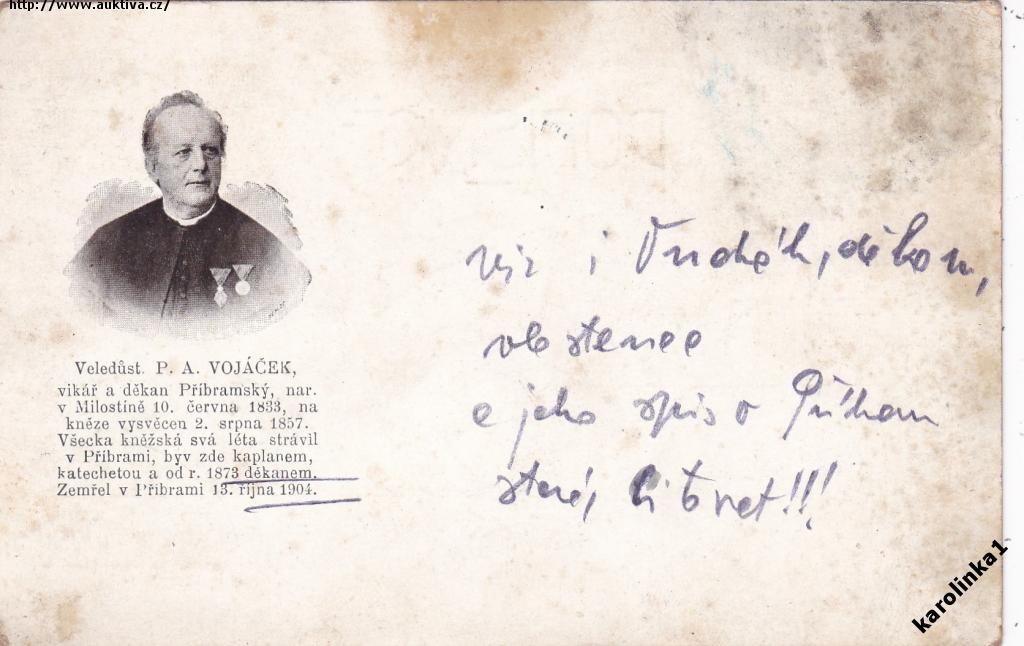 http://www.auktiva.cz/
Veledůst. P. A. VOJÁČEK,
vikář a děkan Příbramský, nar.
v Milostíně 10. června 1833, na
kněze vysvěcen 2. srpna 1857.
Všecka kněžská svá léta strávil
v Příbrami, byv zde kaplanem,
katechetou a od r. 1873 děkanem.
Zemřel v Příbrami 13. října 1904.
viz i děkan,
vlastenec
a jeho spis o
!!!
karolinka1